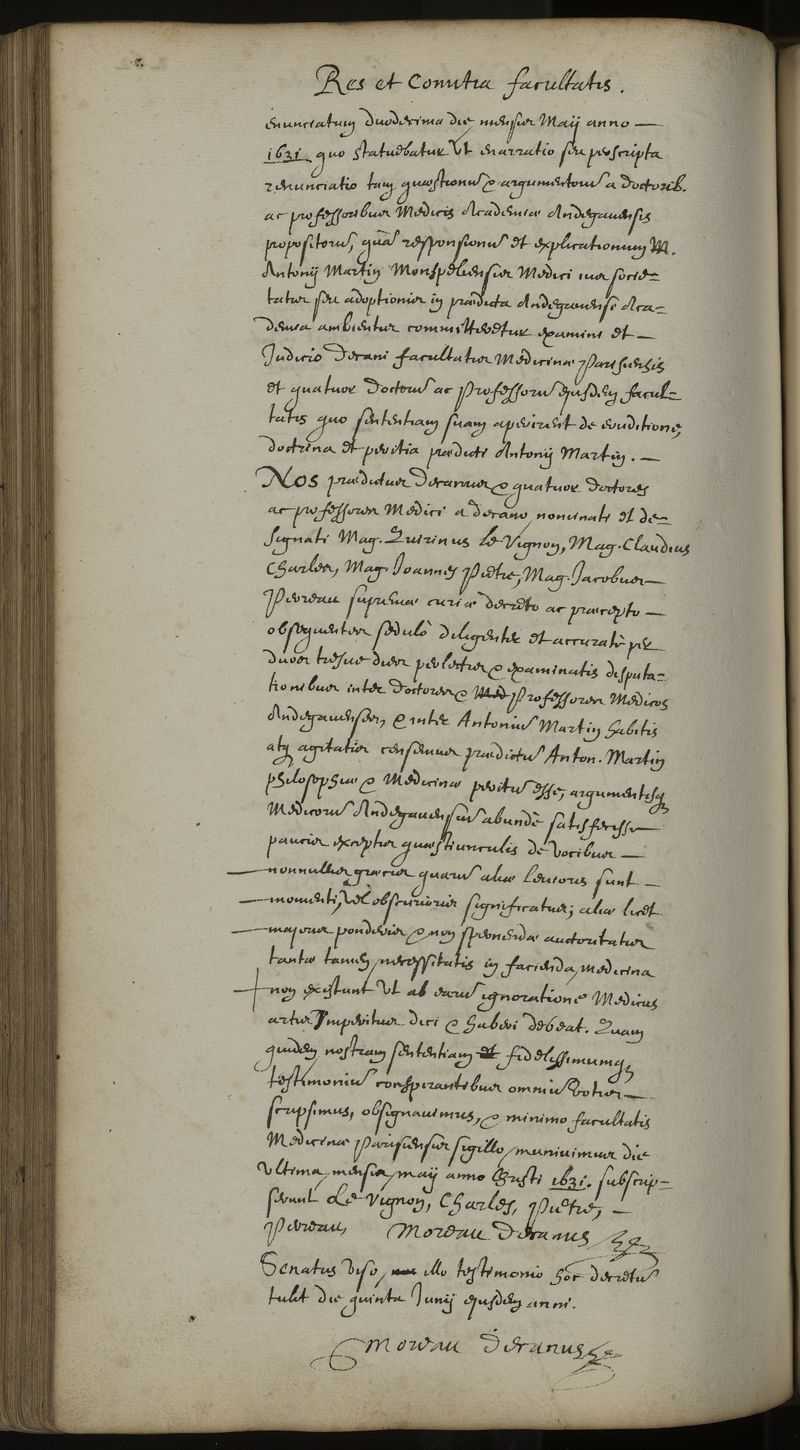 Res et Comitia facultatis.
enunciatum duodecima die mensis Maij anno —
1631 quo statuebatur Vt enarratio seu perscripta
renunciatio tam quæstionũ & argumentorũ a doctorib.
ac professoribus Medicis Academiæ Andegauensis
propositorũ, quã responsionũ et explicationum M.
Antonij Martin Monspeliensis Medici ius socie-
tatis seu adoptionis in prædicta Andegauense Aca-
demia ambientis committeretur examini et —
Judicio Decani facultatis Medicinæ Parisiensis
et quatuor doctorũ ac Professorũ ejusdem facul-
tatis quo sententiam suam aperirent de eruditione,
doctrina et peritia prædicti Antonij Martin. —
Nos prædictus Decanus & quatuor doctores
ac professores Medici a decano nominati et de-
signati Mag. Quirinus le Vignon, Mag. Claudius
Charles, Mag. Joannes Piètre, Mag. Jacobus —
Perreau supremæ curiæ decreto ac præcepto —
obsequentes sedulò diligenter et accuratè per
duos tresue dies perlectis & examinatis disputa-
tionibus inter doctores & Med Professores Medicos
Andegauenses, & inter Antoniũ Martin habitis
atq agitatis censemus prædictũ Anton. Martin
philosophiæ & Medicinæ peritũ esse, argumentisq
Medicorũ Andegauensiũ abundè satisfecisse —
paucis exceptis quæstiunculis de Vocibus —
nonnullis græcis quarũ aliæ leuioris sunt —
momenti, Vel obscurioris significatus; aliæ licet
majoris ponderis & non spernendæ auctoritatis
tantæ tamen necessitatis in facienda medicina
non existunt Vt ab earũ ignoratione Medicus
artis Imperitus dici & haberi debeat. Quam
quidem nostram sententiam et fidelissimumq
testimoniũ conspirantibus omniũ Votis —
scripsimus, obsignauimus, & minimo facultatis
Medicinæ Parisiensis sigillo muniuimus die
Vltima mensis maij anno Christi 1631. subscrip-
serunt le Vignon, Charles, Piètre, —
Perreau, Moreau Decanus
Senatus Viso illo testimonio hoc decretũ
tulit die quinta Junij ejusdem anni.
Moreau Decanus